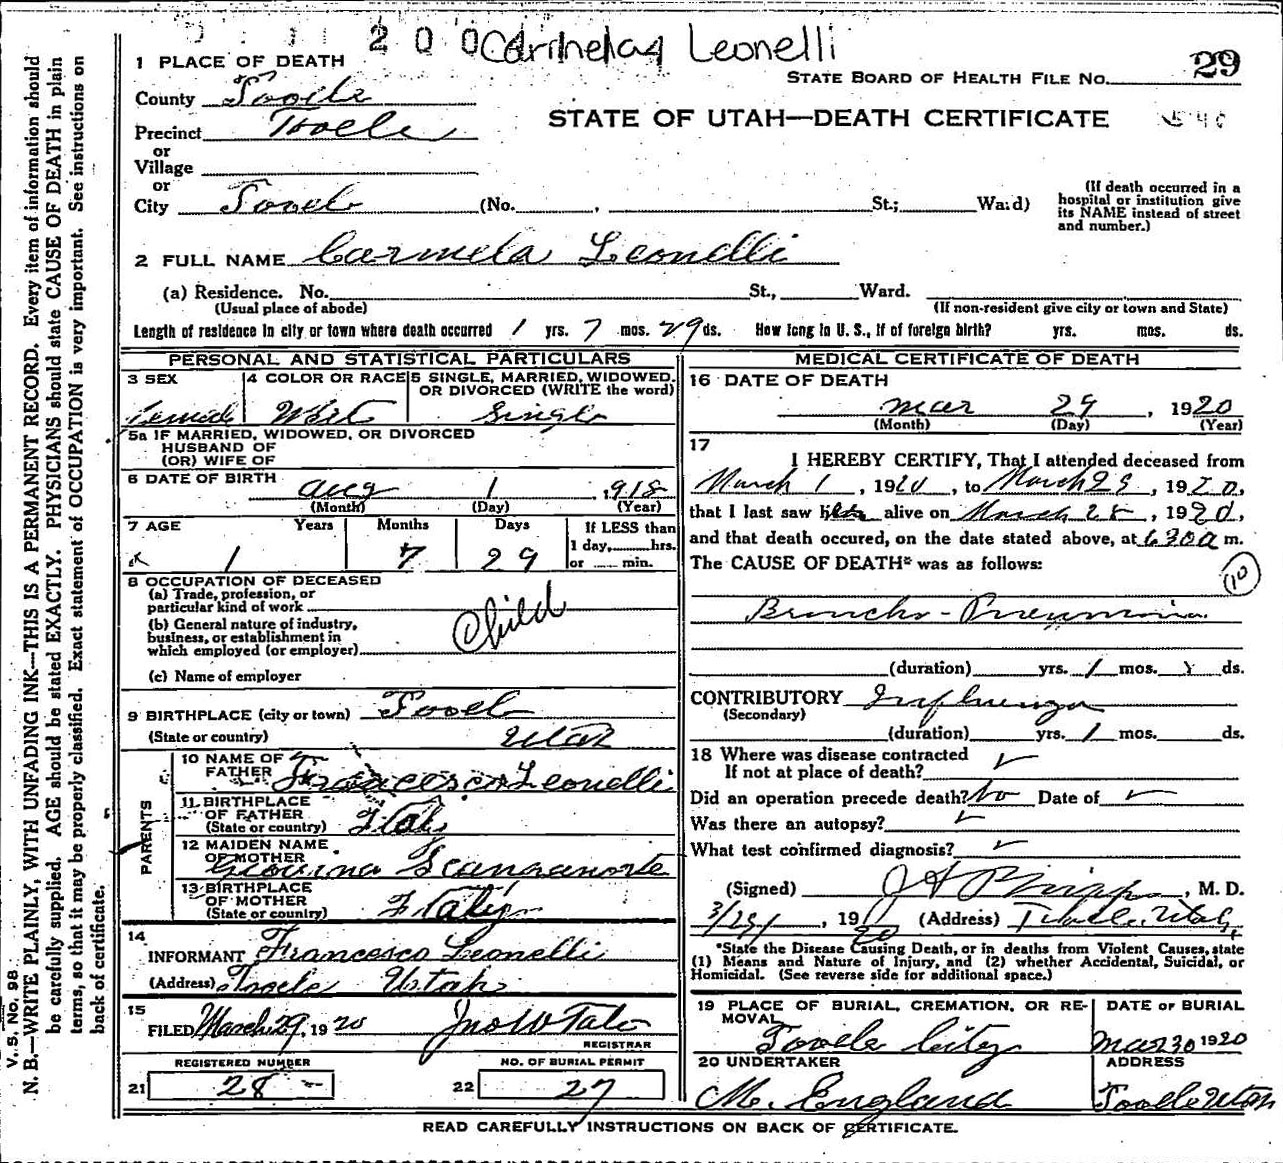 200 Carmela Leonelli
29
STATE BOARD OF HEALTH FILE No.
STATE OF UTAH—DEATH CERTIFICATE
1 PLACE OF DEATH
County Tooele
Precinct Tooele
or
Village
or
City Tooele (No. , St.; Ward)
(If death occurred in a hospital or institution give its NAME instead of street and number.)
2 FULL NAME Carmela Leonelli
(a) Residence. No. St., Ward.
(Usual place of abode) (If non-resident give city or town and State)
Length of residence in city or town where death occurred 1 yrs. 7 mos. 29 ds. How long in U. S., if of foreign birth? yrs. mos. ds.
PERSONAL AND STATISTICAL PARTICULARS
3 SEX 4 COLOR OR RACE 5 SINGLE, MARRIED, WIDOWED, OR DIVORCED (WRITE the word)
Female White Single
5a IF MARRIED, WIDOWED, OR DIVORCED
HUSBAND OF
(OR) WIFE OF
6 DATE OF BIRTH Aug 1 , 1918
(Month) (Day) (Year)
7 AGE Years Months Days If LESS than
1 day, hrs.
or min.
1 7 29
8 OCCUPATION OF DECEASED
(a) Trade, profession, or
particular kind of work
(b) General nature of industry,
business, or establishment in
which employed (or employer)
Child
(c) Name of employer
9 BIRTHPLACE (city or town) Tooele
(State or country) Utah
PARENTS
10 NAME OF
FATHER Francesco Leonelli
11 BIRTHPLACE
OF FATHER
(State or country) Italy
12 MAIDEN NAME
OF MOTHER
13 BIRTHPLACE
OF MOTHER
(State or country) Italy
14
INFORMANT Francesco Leonelli
(Address) Tooele Utah
15
FILED March 29, 1920 Jno W Tate
REGISTRAR
REGISTERED NUMBER NO. OF BURIAL PERMIT
21 28 22 27
MEDICAL CERTIFICATE OF DEATH
16 DATE OF DEATH
Mar 29 , 1920
(Month) (Day) (Year)
17
I HEREBY CERTIFY, That I attended deceased from
March 1 , 1920 , to March 29 , 1920,
that I last saw her alive on March 28 , 1920,
and that death occured, on the date stated above, at 630a m.
The CAUSE OF DEATH* was as follows:
10
Broncho-Pneumonia
(duration) yrs. 1 mos. ds.
CONTRIBUTORY Influenza
(Secondary)
(duration) yrs. 1 mos. ds.
18 Where was disease contracted
If not at place of death?
Did an operation precede death? No Date of
Was there an autopsy?
What test confirmed diagnosis?
(Signed) , M. D.
3/29/ , 19 20 (Address) Tooele Utah
*State the Disease Causing Death, or in deaths from Violent Causes, state
(1) Means and Nature of Injury, and (2) whether Accidental, Suicidal, or
Homicidal. (See reverse side for additional space.)
19 PLACE OF BURIAL, CREMATION, OR RE-
MOVAL DATE OF BURIAL
Tooele City Mar 30 1920
20 UNDERTAKER ADDRESS
M. England Tooele Utah
READ CAREFULLY INSTRUCTIONS ON BACK OF CERTIFICATE.
V. S. No. 98
N. B.—WRITE PLAINLY, WITH UNFADING INK—THIS IS A PERMANENT RECORD. Every item of information should
be carefully supplied. AGE should be stated EXACTLY. PHYSICIANS should state CAUSE OF DEATH in plain
terms, so that it may be properly classified. Exact statement of OCCUPATION is very important. See instructions on
back of certificate.